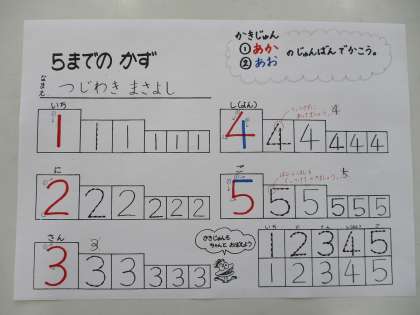 5までの かず
かきじゅん
① あか
② あお
のじゅんばん でかこう。
なまえ つじわき まさよし
いち
1 1 1 1 1 1
し(よん)
4 4 4 4 4 4
4
に
2 2 2 2 2 2
ご
5 5 5 5 5 5
5
さん
3 3 3 3 3 3
3
かきじゅんも
ちゃんと おぼえよう
いち に さん し(よん) ご
1 2 3 4 5
1 2 3 4 5